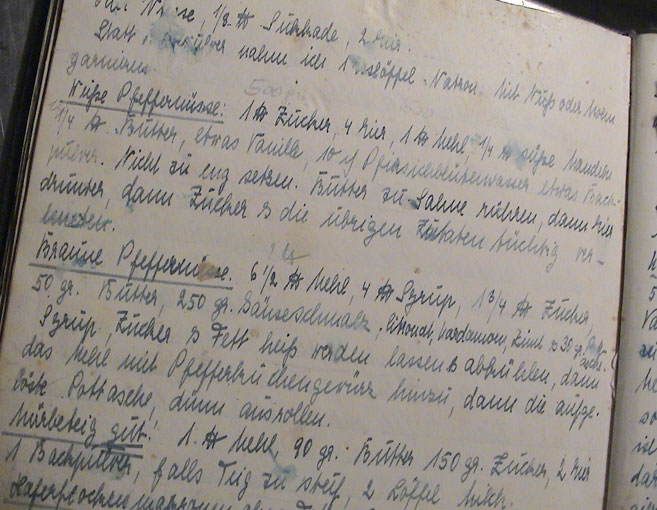 1/8 ℔ Sukkade, 2 Eier.
Statt nahm ich 1 Eßlöffel Natron. Mit Nuß oder
garnieren.
Weiße Pfeffernüsse: 1 ℔ Zucker, 4 Eier, 1 ℔ Mehl, 1/4 ℔ süße Mandeln
1/4 ℔ Butter, etwas Vanille, 10 g Pfirsichblütenwasser etwas Back-
pulver. Nicht zu eng setzen. Butter zu Sahne rühren, dann Eier
drunter, dann Zucker & die übrigen Zutaten tüchtig ver-
kneten.
Braune Pfeffernüsse. 6 1/2 ℔ Mehl, 4 ℔ Syrup, 1 3/4 ℔ Zucker,
50 gr. Butter, 250 gr. Gänseschmalz, Citronat, Kardamom, Zimt & 30 gr. Pottasche.
Syrup, Zucker & Fett heiß werden lassen & abkühlen, dann
das Mehl mit Pfefferkuchengewürz hinzu, dann die aufge-
löste Pottasche, dünn ausrollen.
Mürbeteig gut! 1 ℔ Mehl, 90 gr. Butter 150 gr. Zucker, 2 Eier
1 Backpulver, falls Teig zu steif, 2 Löffel Milch.
Haferflockenmakronen